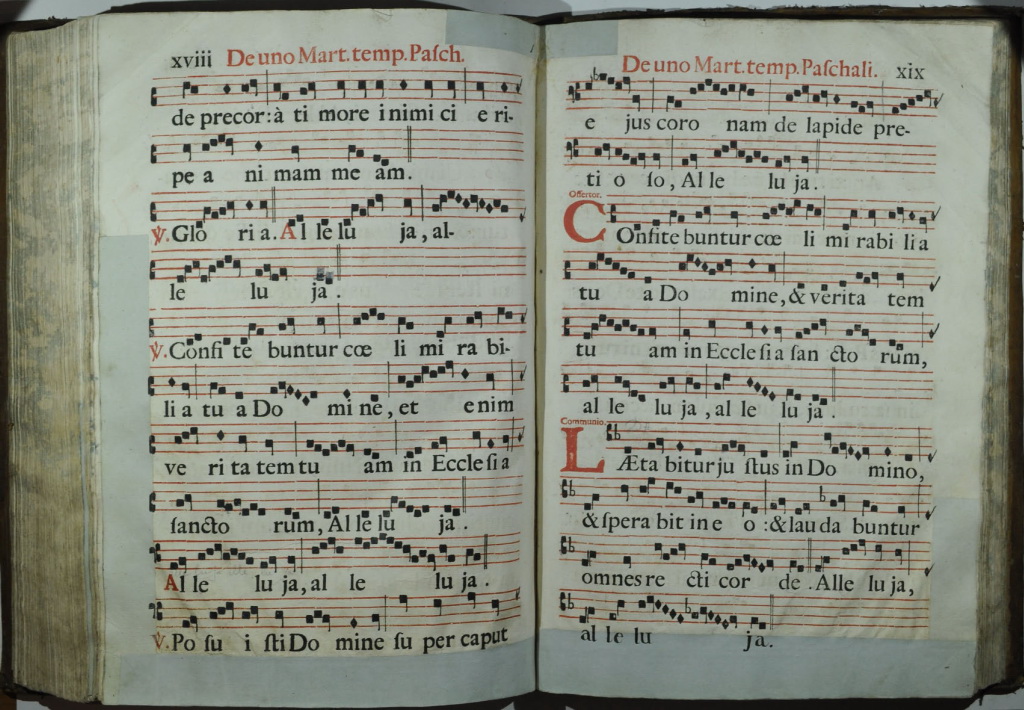 xviii De uno Mart. temp. Paſch.
de precor: à ti more inimi ci e ri-
pe a ni mam me am.
℣. Glo ri a. Al le lu ja, al-
le lu ja.
℣. Confi te buntur cœ li mi ra bi-
li a tu a Do mi ne, et enim
ve ri ta tem tu am in Eccle ſi a
ſancto rum, Al le lu ja.
Al le lu ja, al le lu ja.
℣. Po ſu i ſti Do mine ſu per caput
De uno Mart. temp. Paſchali. xix
e jus coro nam de lapide pre-
ti o ſo, Al le lu ja.
Offertor.
COnfite buntur cœ li mi rabi li a
tu a Do mine, & verita tem
tu am in Eccle ſi a ſan cto rum,
al le lu ja, al le lu ja.
Communio.
LÆta bitur ju ſtus in Do mino,
& ſpera bit in e o: & lau da buntur
omnes re cti cor de. Alle lu ja,
al le lu ja.